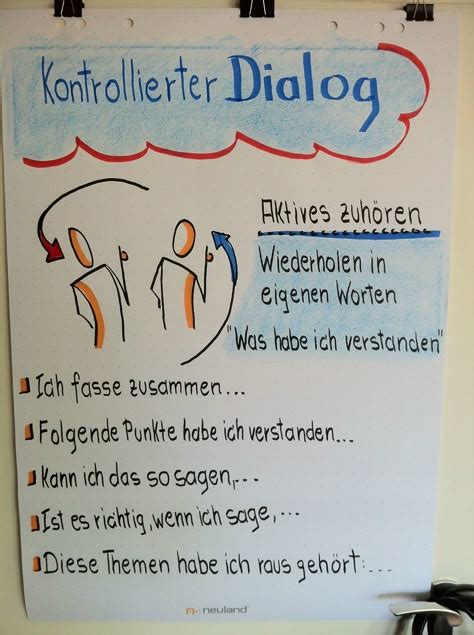 Kontrollierter Dialog
Aktives zuhören
Wiederholen in
eigenen Worten
"Was habe ich verstanden"
Ich fasse zusammen...
Folgende Punkte habe ich verstanden...
Kann ich das so sagen,...
Ist es richtig, wenn ich sage,...
Diese Themen habe ich raus gehört:...
neuland